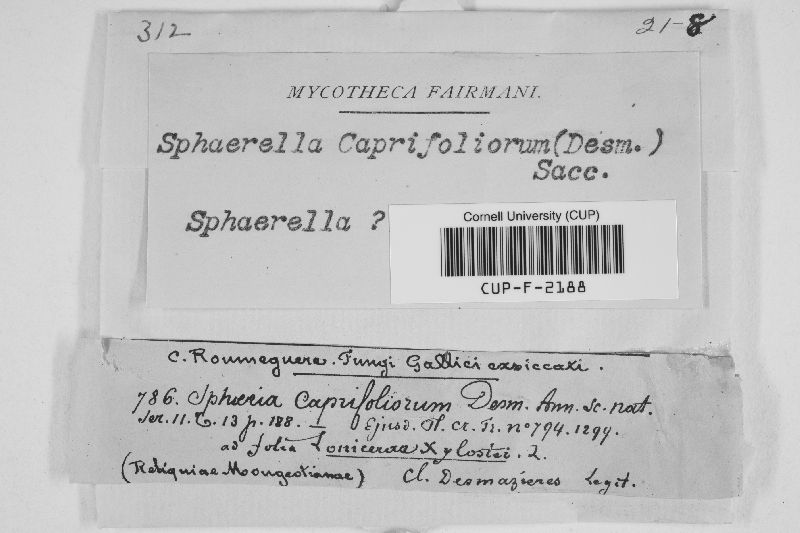 312
21-8
MYCOTHECA FAIRMANI.
Sphaerella Caprifoliorum(Desm.)
Sacc.
Sphaerella ?
Cornell University (CUP)
CUP-F-2188
C. Roumeguere. Fungi Gallici exsiccati.
786. Sphæria Caprifoliorum Desm. Ann. Sc. nat.
Ser. 11. T. 13 p. 188. Ejusd. Pl. Cr. Fr. nº 794. 1294.
ad folia Lonicerae Xylostei. L.
(Reliquiae Mougeotianae) Cl. Desmazieres Legit.